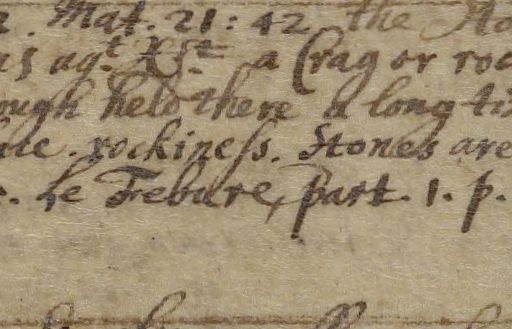 . Mat. 21: 42 the Sto
as agt. Xst. a Crag or roc
ough held there a long ti
. rockiness. Stones are
. le Febure, part. 1. p.